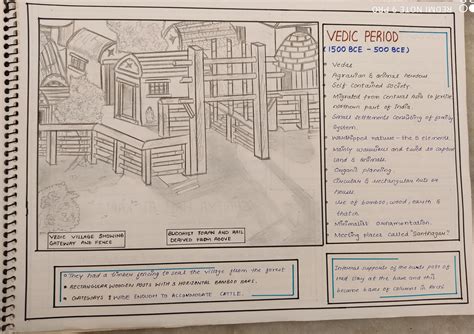 REDMI NOTE 9 PRO
VEDIC PERIOD
(1500 BCE - 500 BCE)
• Vedas
• Agrarian & animal
• Self contained society
• Migrated from central Asia to fertile
northern part of India.
• Small settlements consisting of family
system.
• Worshipped nature - the 5 elements.
• Mainly warriors and used to capture
land & animals.
• Organic planning.
• Circular & rectangular huts or
house
• Use of bamboo, wood, earth &
thatch.
• Minimalist ornamentation.
• Meeting places called
VEDIC VILLAGE SHOWING
GATEWAY AND FENCE
BUDDHIST TORAN AND RAIL
DERIVED FROM ABOVE
• They had a timber fencing to seal the village from the forest
• RECTANGULAR WOODEN POSTS WITH 3 HORIZONTAL BAMBOO BARS.
• GATEWAYS WIDE ENOUGH TO ACCOMODATE CATTLE.
Internal supports of the
at the base and this
became base of columns in